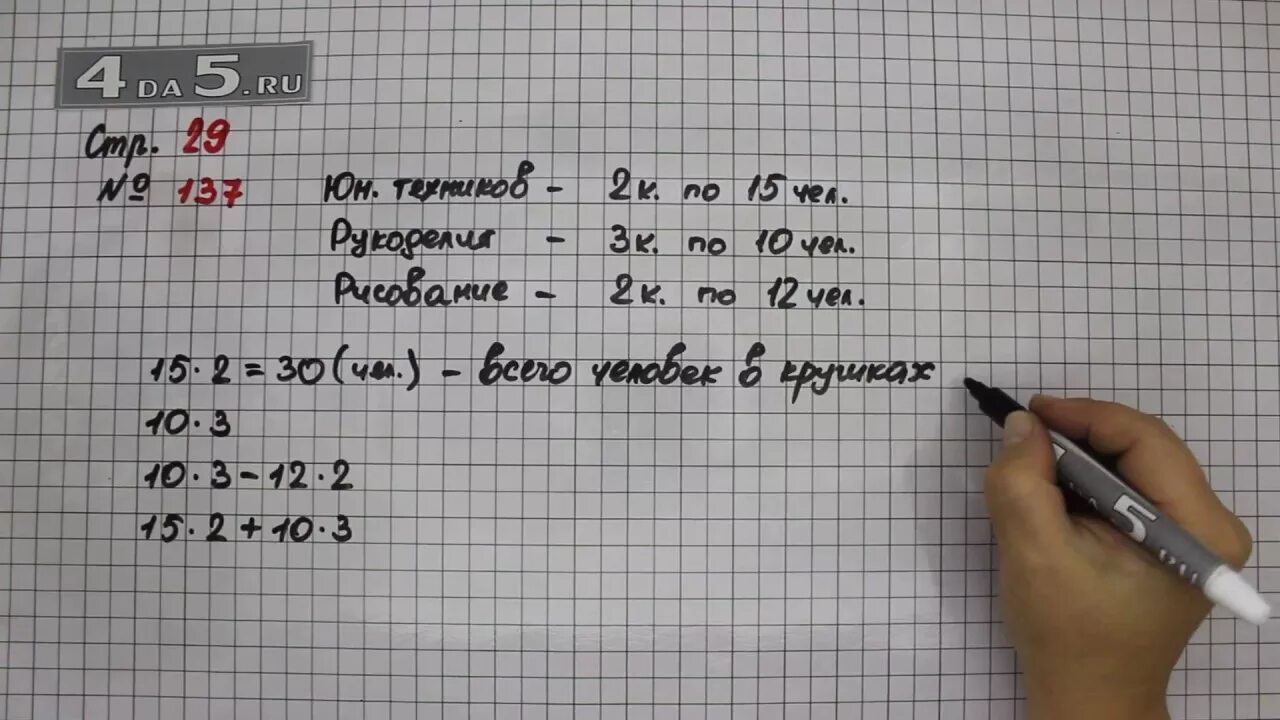 4DA5.RU
Стр. 29
№ 137
Юн. техников - 2к. по 15 чел.
Рукоделия - 3к. по 10 чел.
Рисование - 2к. по 12 чел.
15·2=30(чел.) - всего человек в крушках
10·3
10·3-12·2
15·2+10·3
5
RU